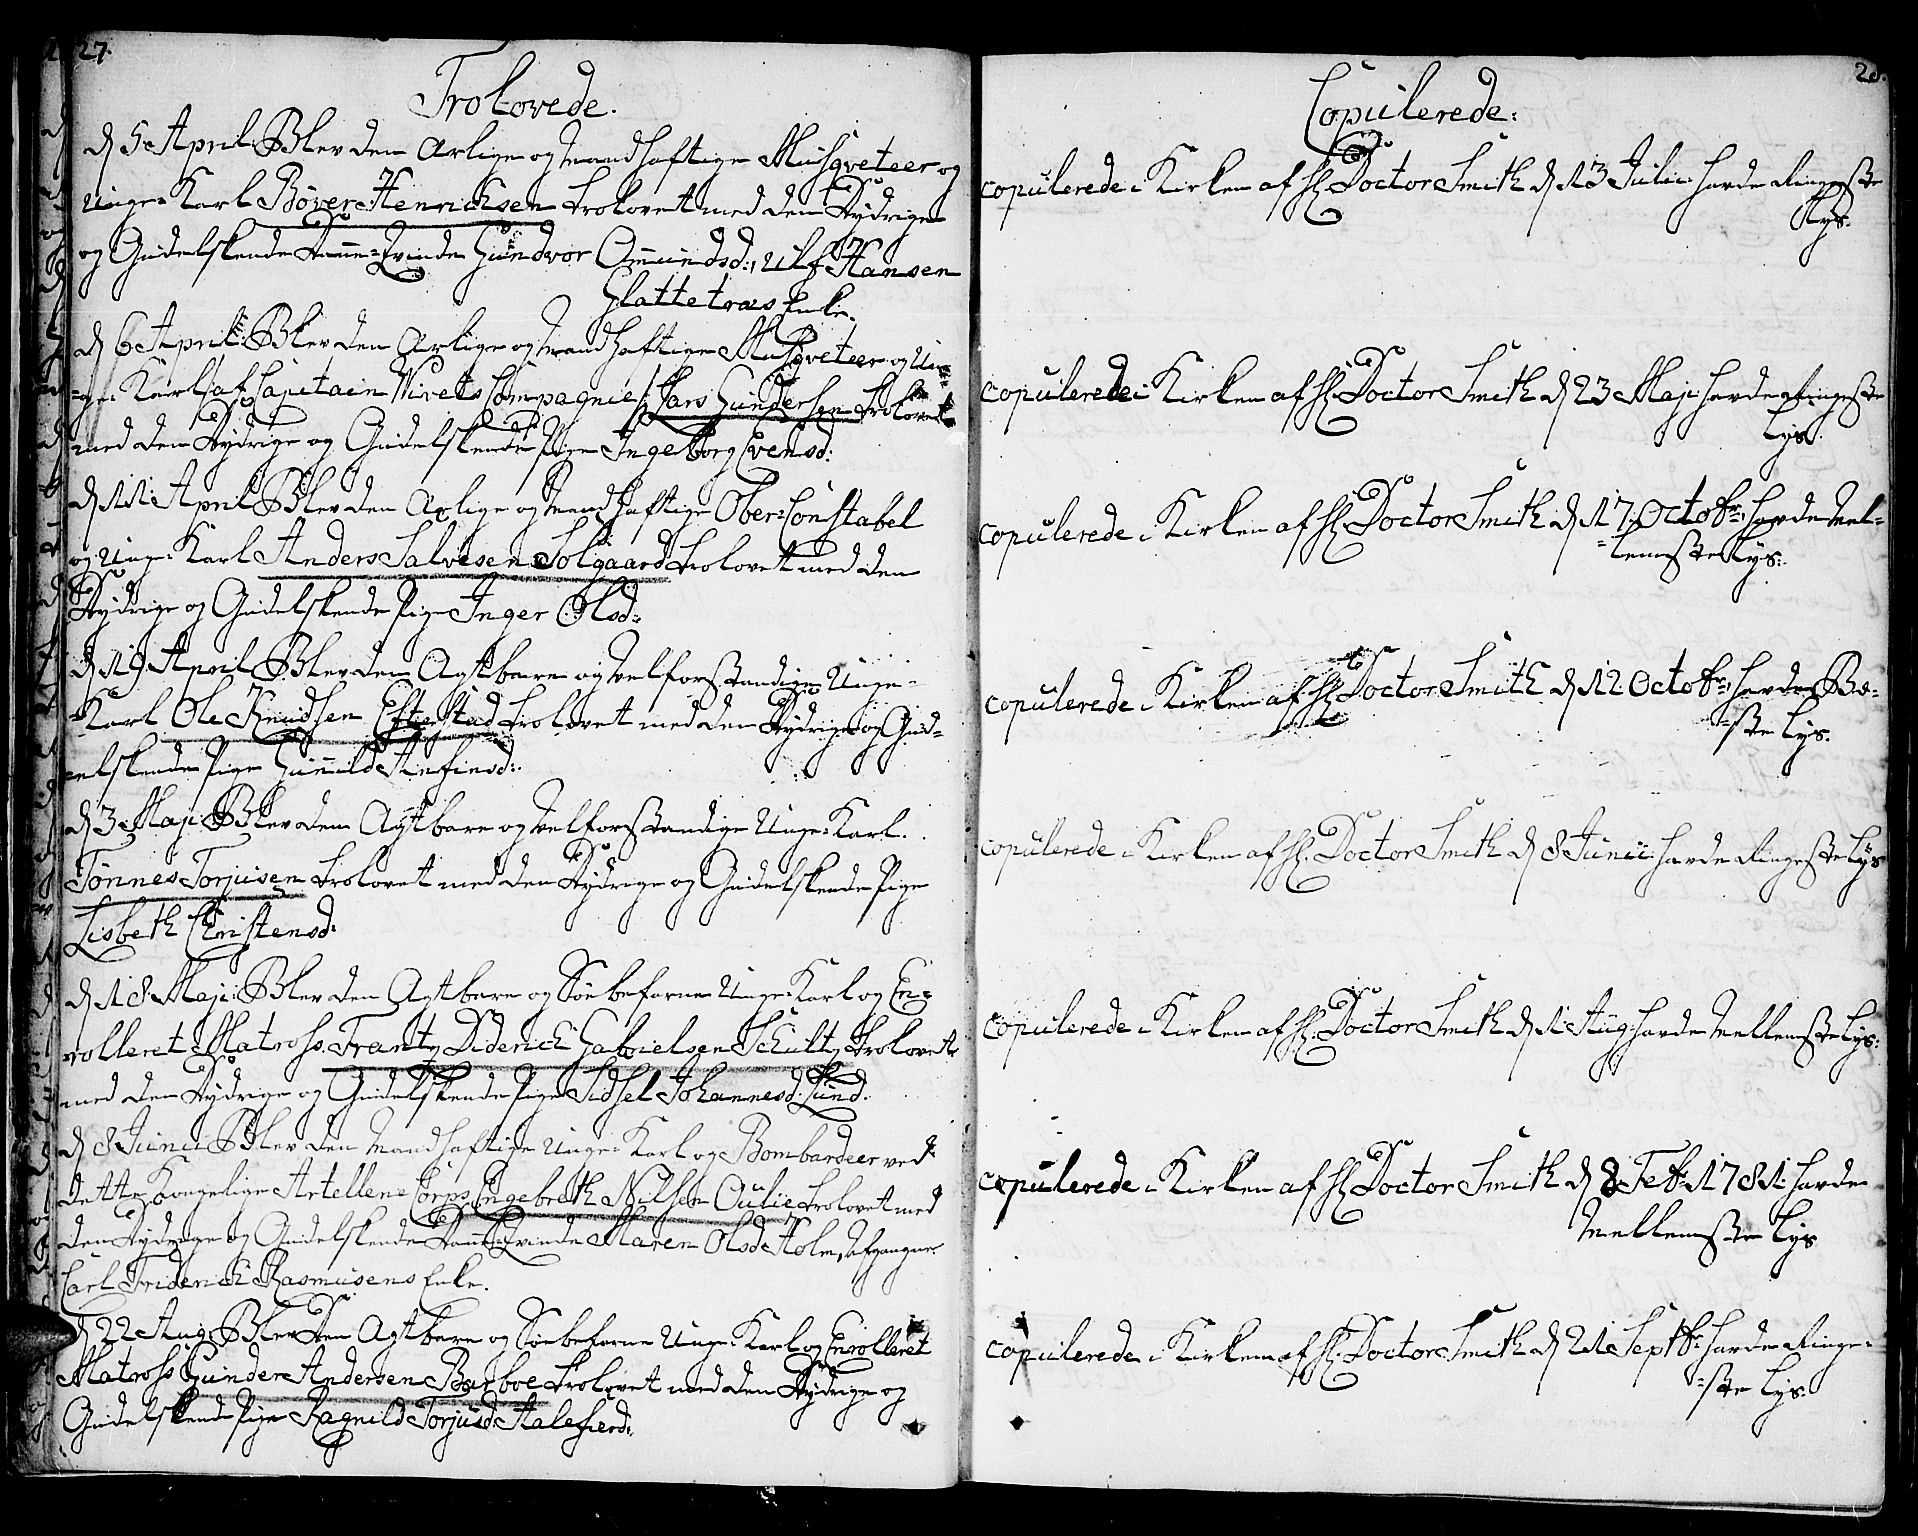 27.
Trolovede.
D 5 April: Blev den Ærlige og Mandhaftige Musqveteer og
Unge Karl Bøver Henrichsen trolovet med den Dydrige
og Gudelskende Danne-Qvinde Gundvor Omundsd:, Ulf Hansen
Glattetræs Enke.
D 6 April: Blev den Ærlige og Mandhaftige Musqveteer og Un-
-ge Karl /af Capitain Compagnie/ Lars Gundersen trolovet
med den Dydrige og Gudelskende Pige Ingeborg Evensd:
D 11 April Blev den Ærlige og Mandhaftige Ober-Constabel
og Unge Karl Anders Salvesen Solgaard trolovet med den
Dydrige og Gudelskende Pige Inger Olsd:
D 19 April Blev den Agtbare og Velforstandige Unge-
-Karl Ole Knudsen Eftestad trolovet med den Dydrige og Gud-
-elskende Pige Gunnild Anfinsd:
D 3 Maji Blev den Agtbare og Velforstandige Unge Karl.
Tønnes Torjusen trolovet med den Dydrige og Gudelskende Pige
Lisbeth Christensd:
D 18 Maji: Blev den Agtbare og Søebefarne Unge Karl og En-
rolleret Matross. Frantz Diderich Gabrielsen Schultz trolovet
med den Dydrige og Gudelskende Pige Sidsel Johannesd: Lund.
D 8 Junii Blev den Mandhaftige Unge Karl og Bombardeer ved
dette Kongelige Artellerie Corps Engebreth Nilsen Oulie trolovet med
den Dydrige og Gudelskende Danne-Qvinde Maren Olsd Holm, Afgangne
Carl Friderich Rasmusens Enke.
D 22 Aug: Blev den Agtbare og Søebefarne Unge Karl og Enrolleret
Matross Gunder Andersen Barboe trolovet med den Dydrige og
Gudelskende Pige Ragnild Torjusd Halefierd:
28.
Copulerede:
copulerede i Kirken af H: Doctor Smith D 13 Julii: havde Ringeste
Lys:
copulerede i Kirken af H: Doctor Smith D 23 Maji havde Ringeste
Lys.
copulerede i Kirken af H: Doctor Smith D 17 Octobr: havde Mel-
-lemste Lys:
copulerede i Kirken af H: Doctor Smith D 12 Octobr: havde Be-
-ste Lys.
copulerede i Kirken af H: Doctor Smith D 8 Junii: havde Ringeste Lys
copulerede i Kirken af H: Doctor Smith D 1 Aug: havde Mellemste Lys:
copulerede i Kirken af H: Doctor Smith D 8 Feb: 1781: havde
Mellemste Lys
copulerede i Kirken af H: Doctor Smith D 21 Septbr: havde Ringe-
-ste Lys: